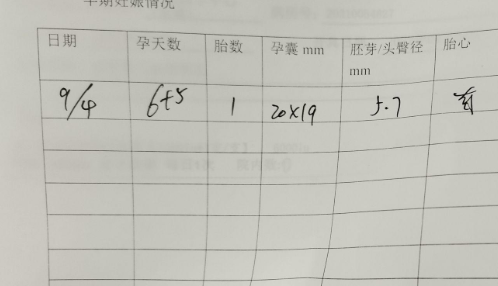 早期妊娠情况
日期 孕天数 胎数 孕囊 mm 胚芽/头臀径 mm 胎心
9/4 6+5 1 20×19 5.7 有